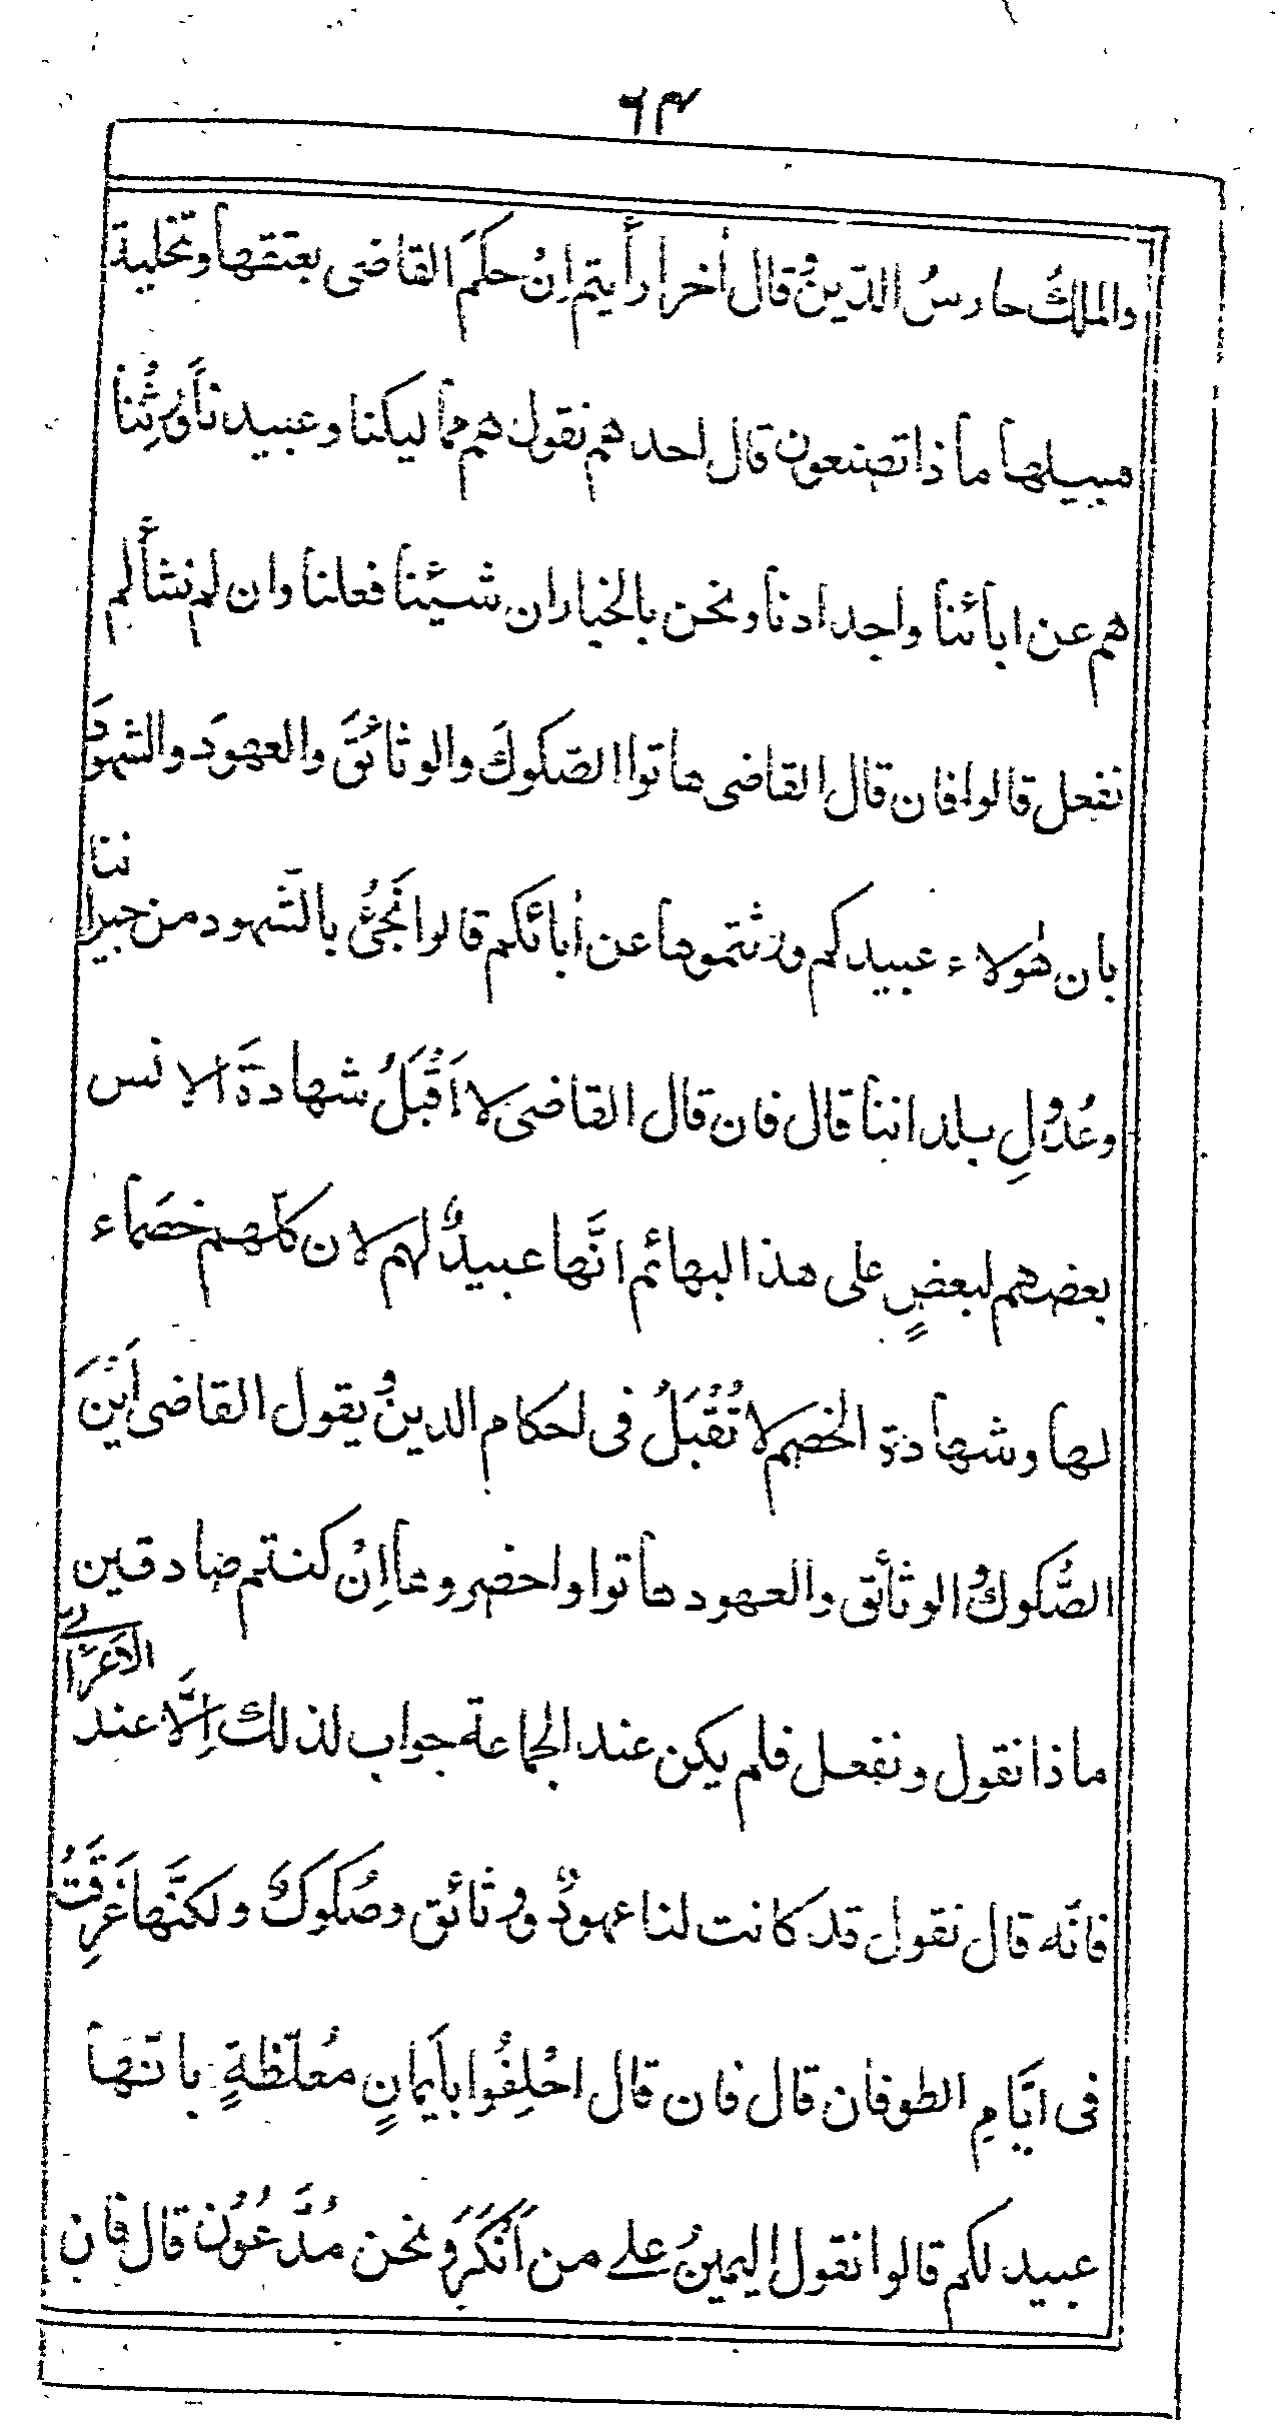 ٦٣
والملكُ حارسُ الدّينِ وُقال اٰخر ارأيتم اِنْ حكَمَ القاضى بعتقها وتخلية
سبيلها ماذا تصنعون قال احدهم نقول هم مماليكنا وعبيدنا وَُرِثْنا
هم عن ابائنا واجدادنا ونحن بالخيار ان شيئنا فعلنا وان لم نشأ لم
نفعل قالوا فان قال القاضى هاتوا الصّكوكَ والوثائقَ والعهودَ والشهودَ
بان هٰولاء عبيدكم ورثتموها عن اٰبائكم قالوا نَجئُ بالشّهود من جيراننا
وعُدُولِ بلداننا قال فان قال القاضى لا اَقْبَلُ شهادةَ الانس
بعضهم لبعضٍ على هذا البهائم انَّها عبيدٌ لهم لان كلّهم خصَماء
لها وشهادة الخصم لا تُقْبَلُ فى احكام الدين وُيقول القاضى اَيْنَ
الصُّكوكُ والوثائق والعهود هاتوا واحضروها اِنْ كنتم صادقين
ماذا نقول ونفعل فلم يكن عند الجماعة جواب لذلك اِلَّا عند الاَعْرَابِى
فانّه قال نقول قد كانت لنا عهودٌ ووُثائق وصُكوكَ ولكنَّها غَرِقَتْ
فى ايَّامِ الطوفان قال فان قال احْلِفُوا بأَيمانٍ مغلّظةٍ بانّها
عبيد لكم قالوا نقول اليمينُ على من اَنْكَرَ وَنحن مُدَّعُوُن قال فان